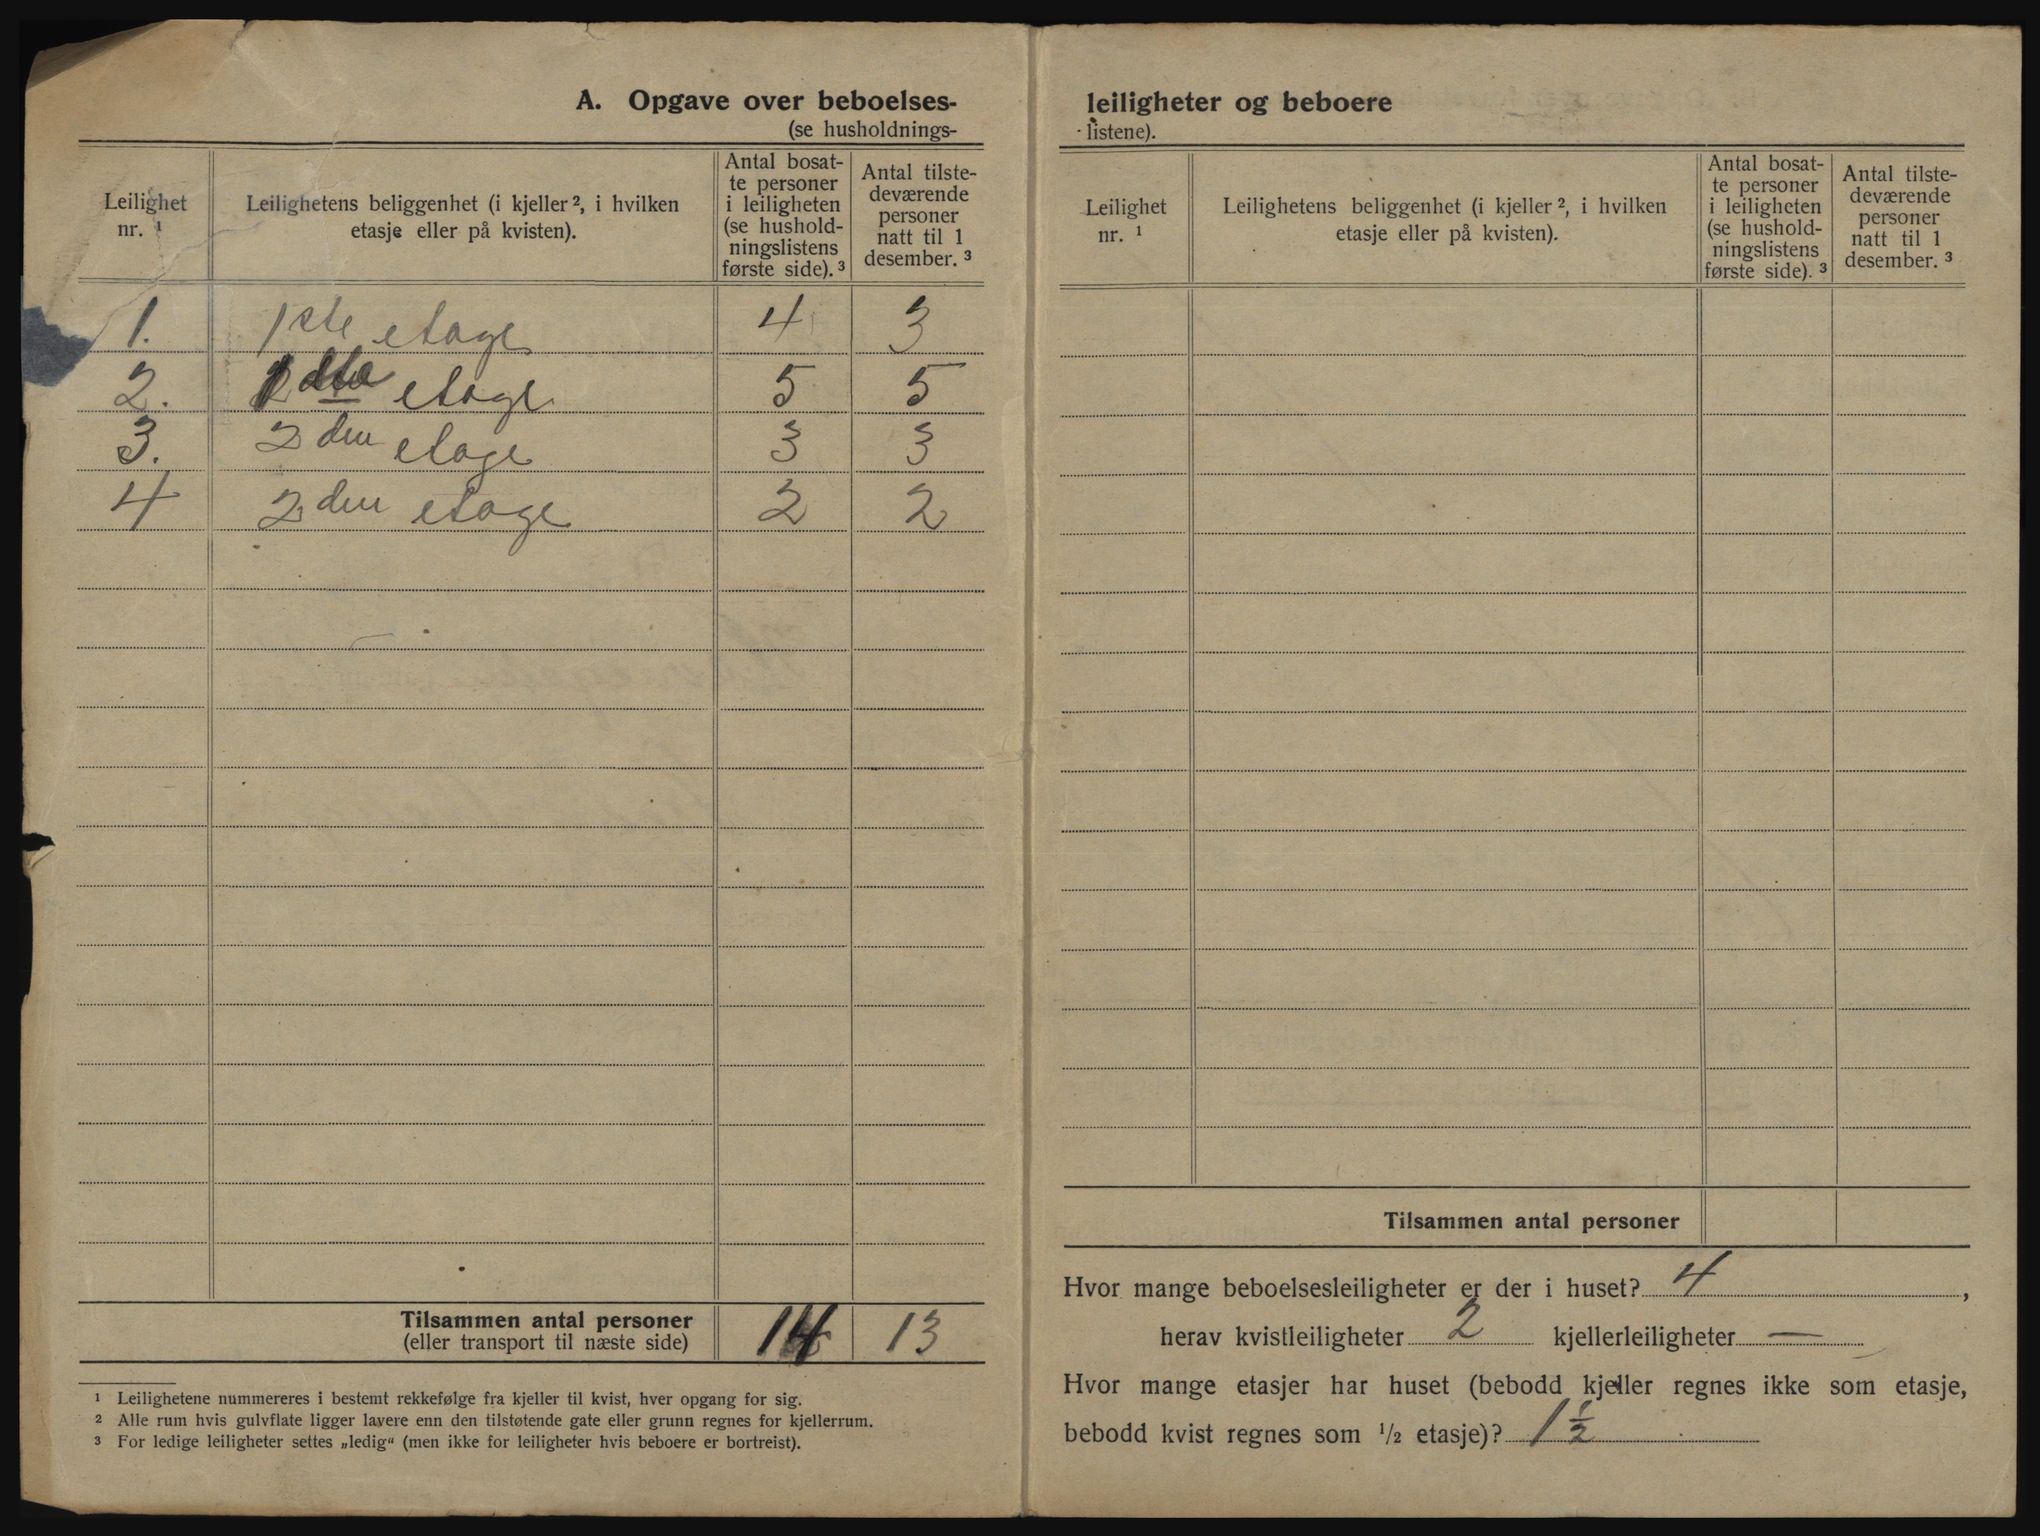 A. Opgave over beboelses-
(se husholdnings-
Leilighet
nr. ¹
Leilighetens beliggenhet (i kjeller ², i hvilken
etasje eller på kvisten).
Antal bosat-
te personer
i leiligheten
(se hushold-
ningslistens
første side). ³
Antal tilste-
deværende
personer
natt til 1
desember. ³
1. 1ste etage 4 3
2. etage 5 5
3. 2den etage 3 3
4 2den etage 2 2
Tilsammen antal personer
(eller transport til næste side)
14 13
¹ Leilighetene nummereres i bestemt rekkefølge fra kjeller til kvist, hver opgang for sig.
² Alle rum hvis gulvflate ligger lavere enn den tilstøtende gate eller grunn regnes for kjellerrum.
³ For ledige leiligheter settes „ledig“ (men ikke for leiligheter hvis beboere er bortreist).
leiligheter og beboere
listene).
Leilighet
nr. ¹
Leilighetens beliggenhet (i kjeller ², i hvilken
etasje eller på kvisten).
Antal bosat-
te personer
i leiligheten
(se hushold-
ningslistens
første side). ³
Antal tilste-
deværende
personer
natt til 1
desember. ³
Tilsammen antal personer
Hvor mange beboelsesleiligheter er der i huset? 4,
herav kvistleiligheter 2 kjellerleiligheter —
Hvor mange etasjer har huset (bebodd kjeller regnes ikke som etasje,
bebodd kvist regnes som ½ etasje)? 1 ½